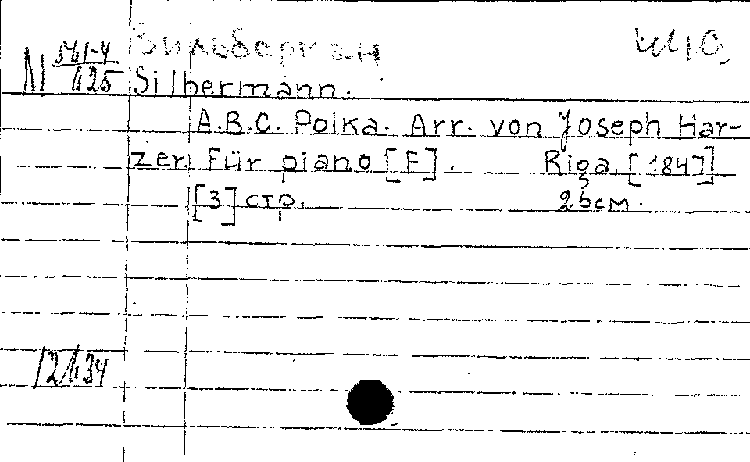 М 561-4 Зильберман Ш10,
125 Silbermann.
A.B.C. Polka. Arr. von Joseph Har-
zer. Für piano [F]. Riga, [184?]
[3] стр. 26 см.